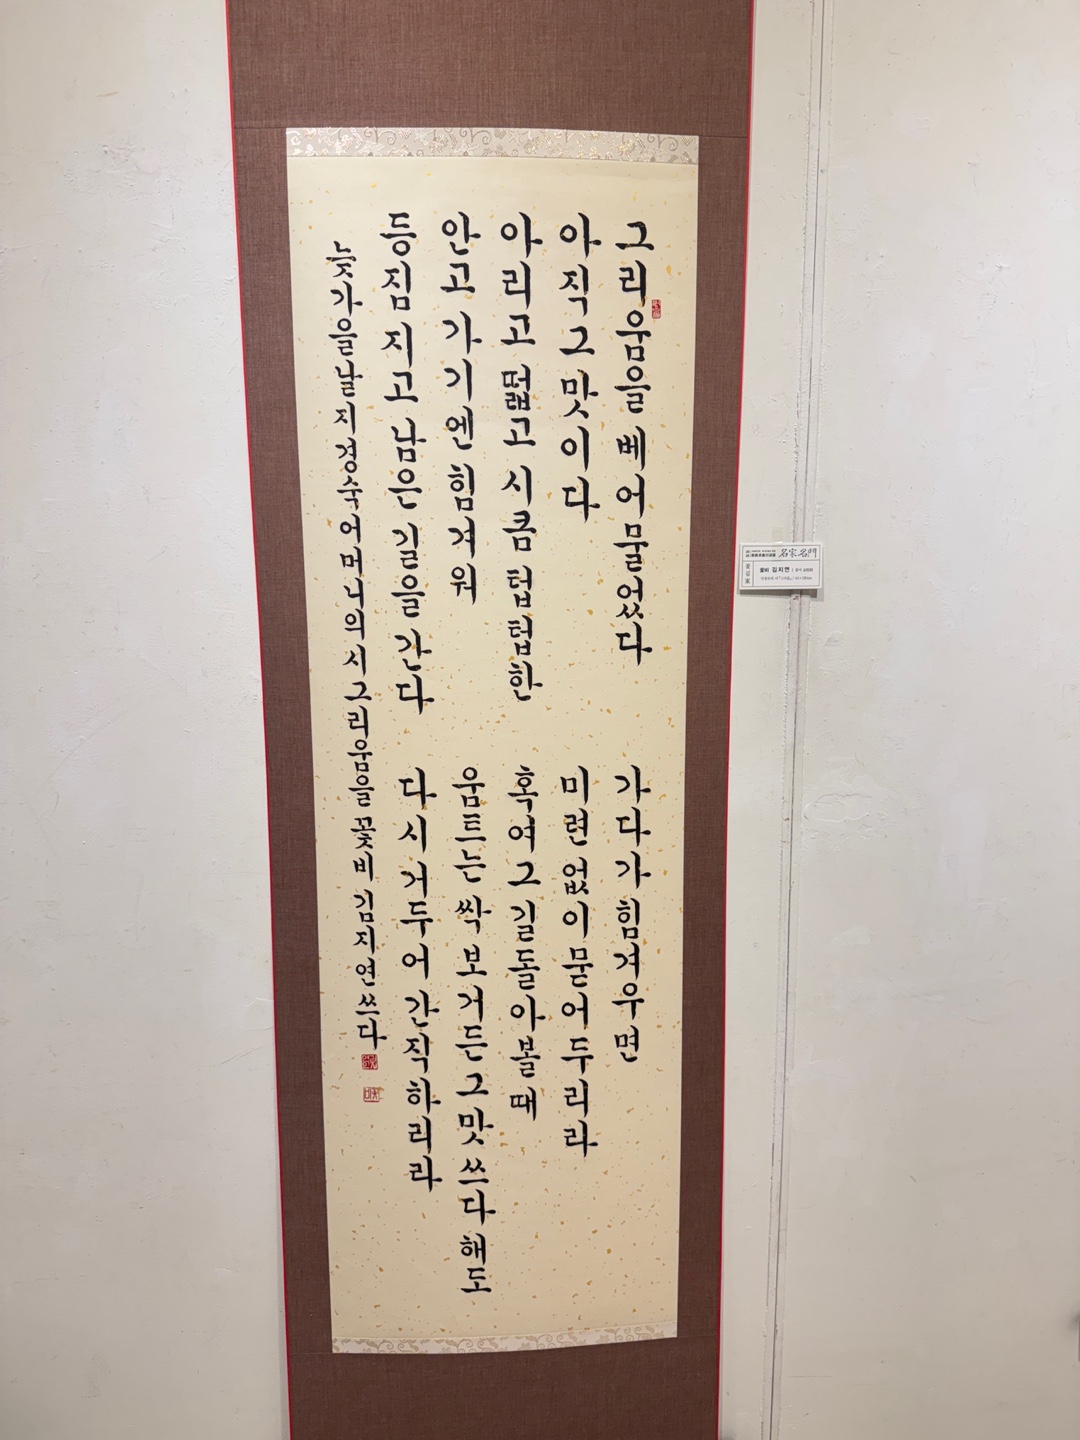 그리움을 베어 물었다
아직 그 맛이다
아리고 떫고 시큼 텁텁한
안고 가기엔 힘겨워
등짐 지고 남은 길을 간다
가다가 힘겨우면
미련 없이 묻어 두리라
혹여 그 길 돌아볼 때
움트는 싹 보거든 그 맛 쓰다 해도
다시 거두어 간직하리라
늦가을날 지경숙 어머니의 시 그리움을 꽃비 김지연 쓰다
名家名門
꽃비 김지연